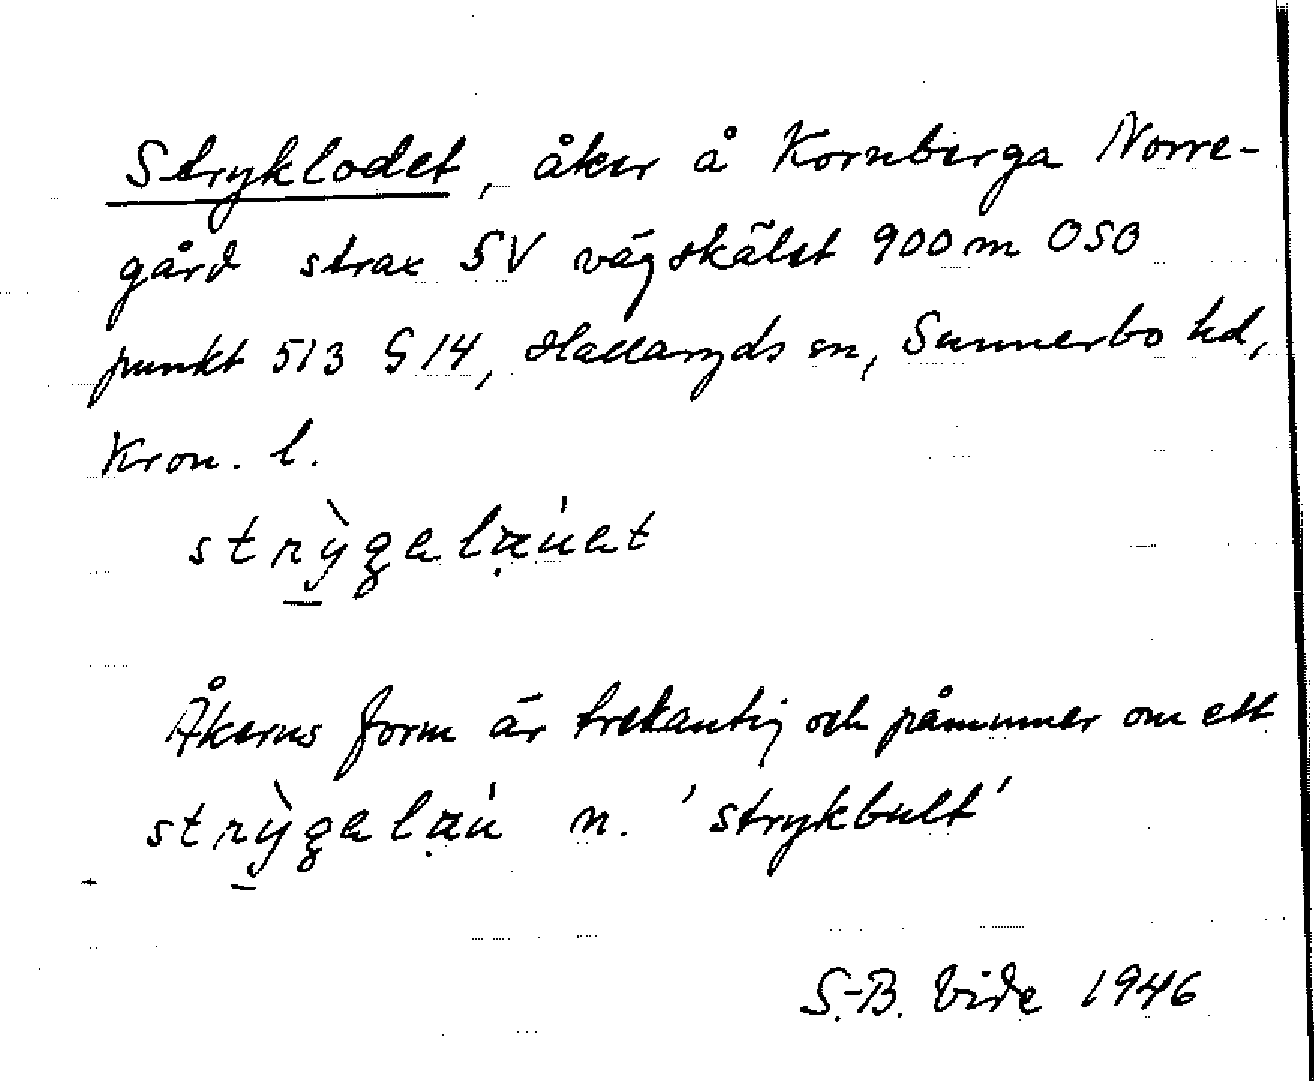 Stryklodet, åker å Kornberga Norre-
gård strax SV vägskälet 900 m OSO
punkt 513 G 14, Hallaryds sn, Sunnerbo hd,
Kron. l.
strỳgelæúet
Åkerns form är trekantig och påminner om ett
strỳgelæú n. 'strykbult'
S.-B. Vide 1946